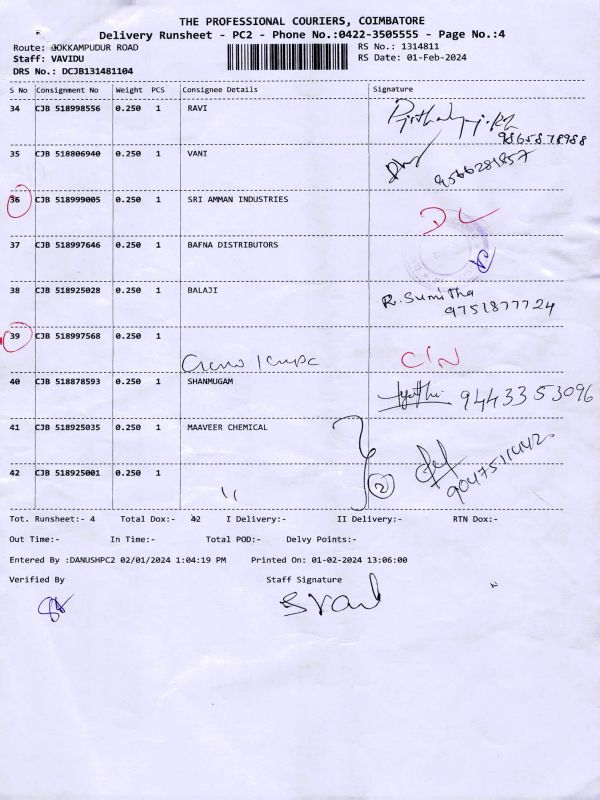 THE PROFESSIONAL COURIERS, COIMBATORE
Delivery Runsheet - PC2 - Phone No.:0422-3505555 - Page No.:4
Route: GOKKAMPUDUR ROAD RS No.: 1314811
Staff: VAVIDU RS Date: 01-Feb-2024
DRS No.: DCJB131481104
S No Consignment No Weight PCS Consignee Details Signature
34 CJB 518998556 0.250 1 RAVI
9865878988
35 CJB 518806940 0.250 1 VANI
9566281857
36 CJB 518999005 0.250 1 SRI AMMAN INDUSTRIES DL
37 CJB 518997646 0.250 1 BAFNA DISTRIBUTORS
38 CJB 518925028 0.250 1 BALAJI R. Sumitha
9751877724
39 CJB 518997568 0.250 1
C/N
40 CJB 518878593 0.250 1 SHANMUGAM 9443353096
41 CJB 518925035 0.250 1 MAAVEER CHEMICAL
42 CJB 518925001 0.250 1 " 2
Tot. Runsheet:- 4 Total Dox:- 42 I Delivery:- II Delivery:- RTN Dox:-
Out Time:- In Time:- Total POD:- Delvy Points:-
Entered By :DANUSHPC2 02/01/2024 1:04:19 PM Printed On: 01-02-2024 13:06:00
Verified By Staff Signature